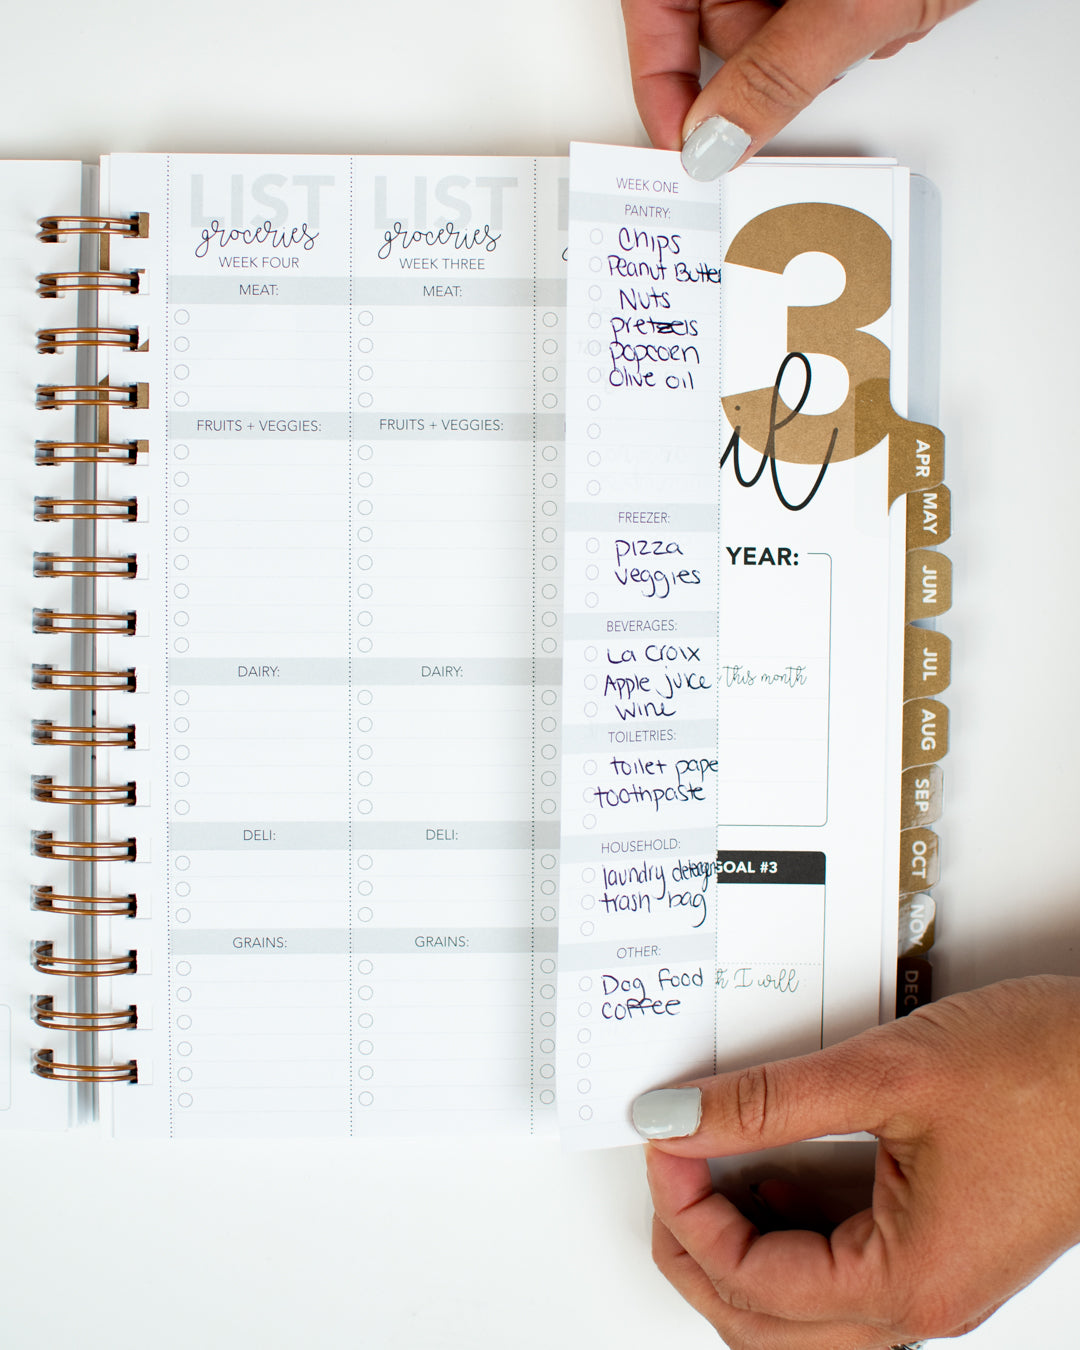 LIST
groceries
WEEK FOUR
MEAT:
FRUITS + VEGGIES:
DAIRY:
DELI:
GRAINS:
LIST
groceries
WEEK THREE
MEAT:
FRUITS + VEGGIES:
DAIRY:
DELI:
GRAINS:
WEEK ONE
PANTRY:
Chips
Peanut Butter
Nuts
pretzels
popcorn
Olive oil
FREEZER:
pizza
veggies
BEVERAGES:
La Croix
Apple juice
wine
TOILETRIES:
toilet pape
toothpaste
HOUSEHOLD:
laundry detergen
trash bag
OTHER:
Dog Food
coffee
3
il
YEAR:
this month
GOAL #3
h I will:
APR
MAY
JUN
JUL
AUG
SEP
OCT
NOV
DEC